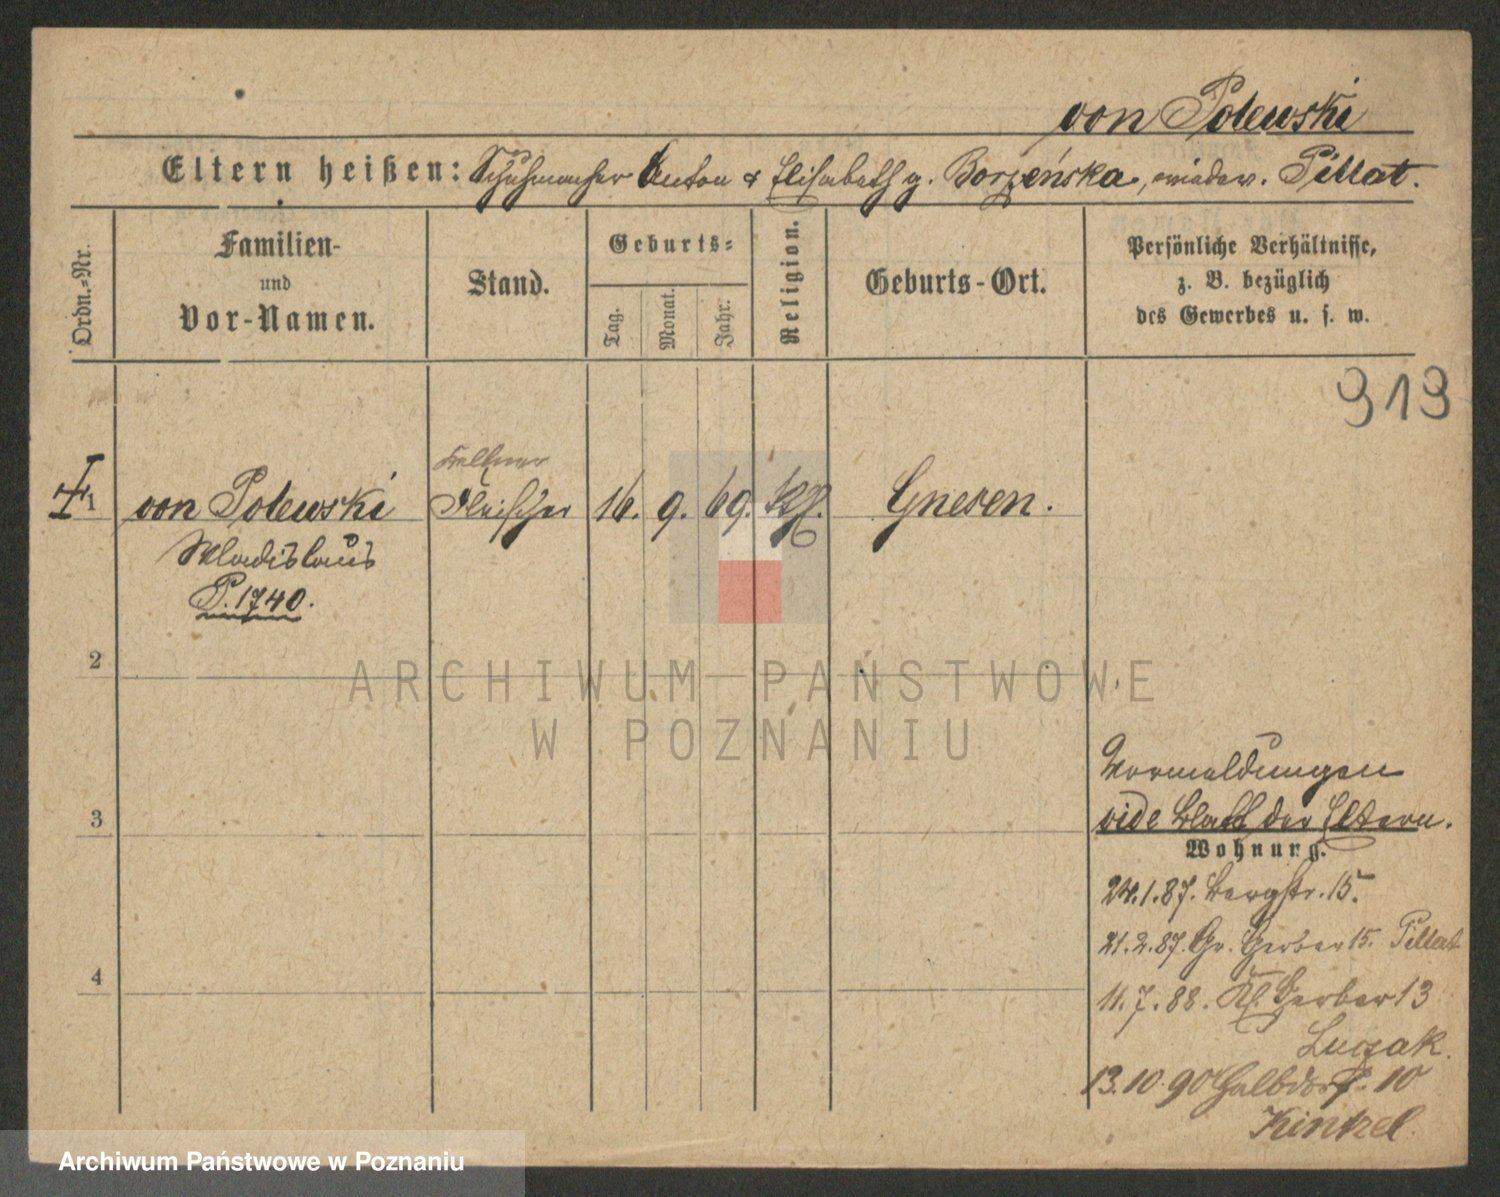 von Polewski
Eltern heißen: Schuhmacher Anton & Elisabeth g. Borzeńska, wiederv. Pillat.
Ordn.-Nr.
Familien-
und
Vor-Namen.
Stand.
Geburts-
Tag.
Monat.
Jahr.
Religion.
Geburts-Ort.
Persönliche Verhältnisse,
z. B. bezüglich
des Gewerbes u. s. w.
919
Kellner
1 von Polewski Fleischer 16. 9. 69. kth. Gnesen.
Wladislaus
P. 1740.
2
ARCHIWUM PAŃSTWOWE
W POZNANIU
Vormeldungen
3
vide Blatt der Eltern.
Wohnung.
24.1.87. Bergstr. 15.
21.2.87. Gr. Gerber 15. Pillat
4
11.7.88. Kl. Gerber 13
13.10.90 Halbdorf 10
Kintzel
Archiwum Państwowe w Poznaniu